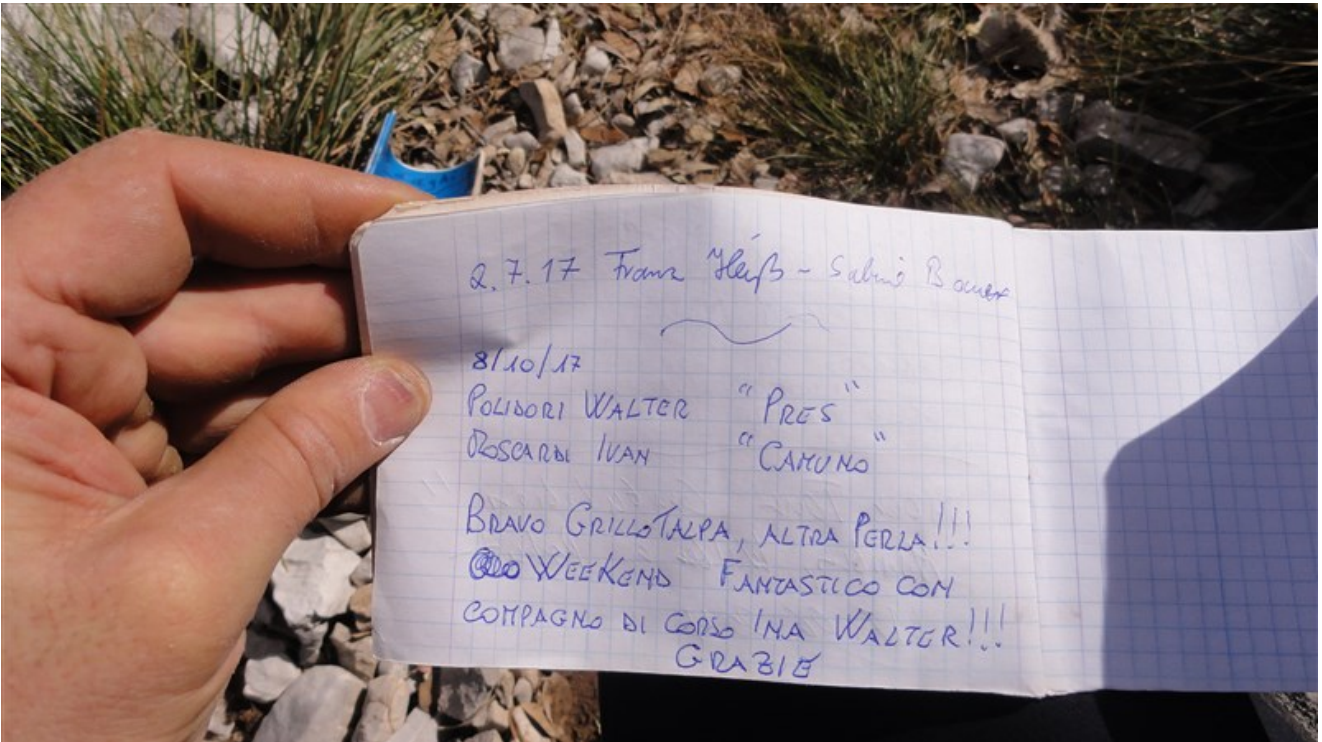 2.7.17 Franz Heiß - Sabine Bauer
8/10/17
POLIDORI WALTER "PRES"
ROSCARDI IVAN "CAMUNO"
BRAVO GRILLOTALPA, ALTRA PERLA!!!
WEEKEND FANTASTICO CON
COMPAGNO DI CORSO INA WALTER!!!
GRAZIE